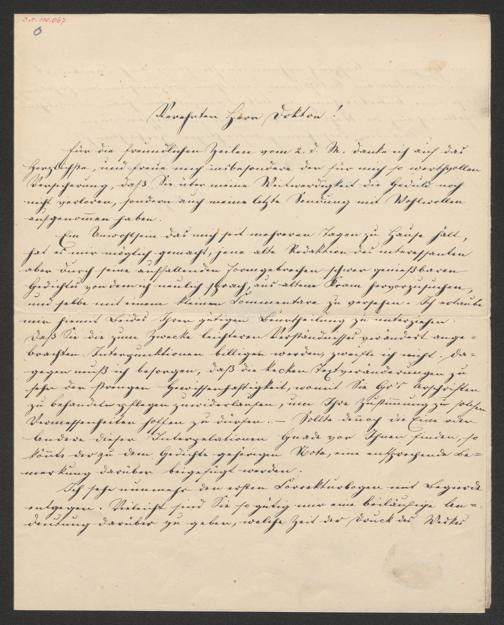 Verehrter Herr Doktor!
Für die freundlichen Zeilen vom 2. d. M. danke ich auf das
Herzlichste, und freue mich insbesondere der für mich so werthvollen
Versicherung, daß Sie über meine Weitwendigkeit die Geduld noch
nicht verloren, sondern auch meine letzte Sendung mit Wohlwollen
aufgenommen haben.
Ein Unwohlsein das mich seit mehreren Tagen zu Hause hält,
hat es mir möglich gemacht, jene alte Redaktion des interessanten
aber durch seine auffallenden Formgebrechen schwer genießbaren
Gedichtes von dem ich neulich sprach, aus altem Kram hervorzusuchen,
und selbe mit einem kleinen Commentare zu versehen. Ich erlaube
mir hiemit beides Ihrer gütigen Beurtheilung zu unterziehen.
Daß Sie die zum Zwecke leichteren Verständnisses verändert ange-
brachten Interpunktionen billigen werden, zweifle ich nicht; da-
gegen muß ich besorgen, daß die kecken Textveränderungen zu
sehr der strengen Gewissenhaftigkeit, womit Sie Go's Urschriften
zu behandeln pflegen zuwiderlaufen, um Ihre Zustimmung zu solchen
Vermessenheiten hoffen zu dürfen. – Sollte doch die eine oder
andere dieser Interpolationen Gnade vor Ihnen finden, so
könnte der zu dem Gedichte gehörigen Note, eine entsprechende Be-
merkung darüber beigefügt werden.
Ich sehe nunmehr den ersten Correkturbogen mit Begierde
entgegen. Vieleicht sind Sie so gütig mir eine beiläufige An-
deutung darüber zu geben, welche Zeit der Druck des Werkes